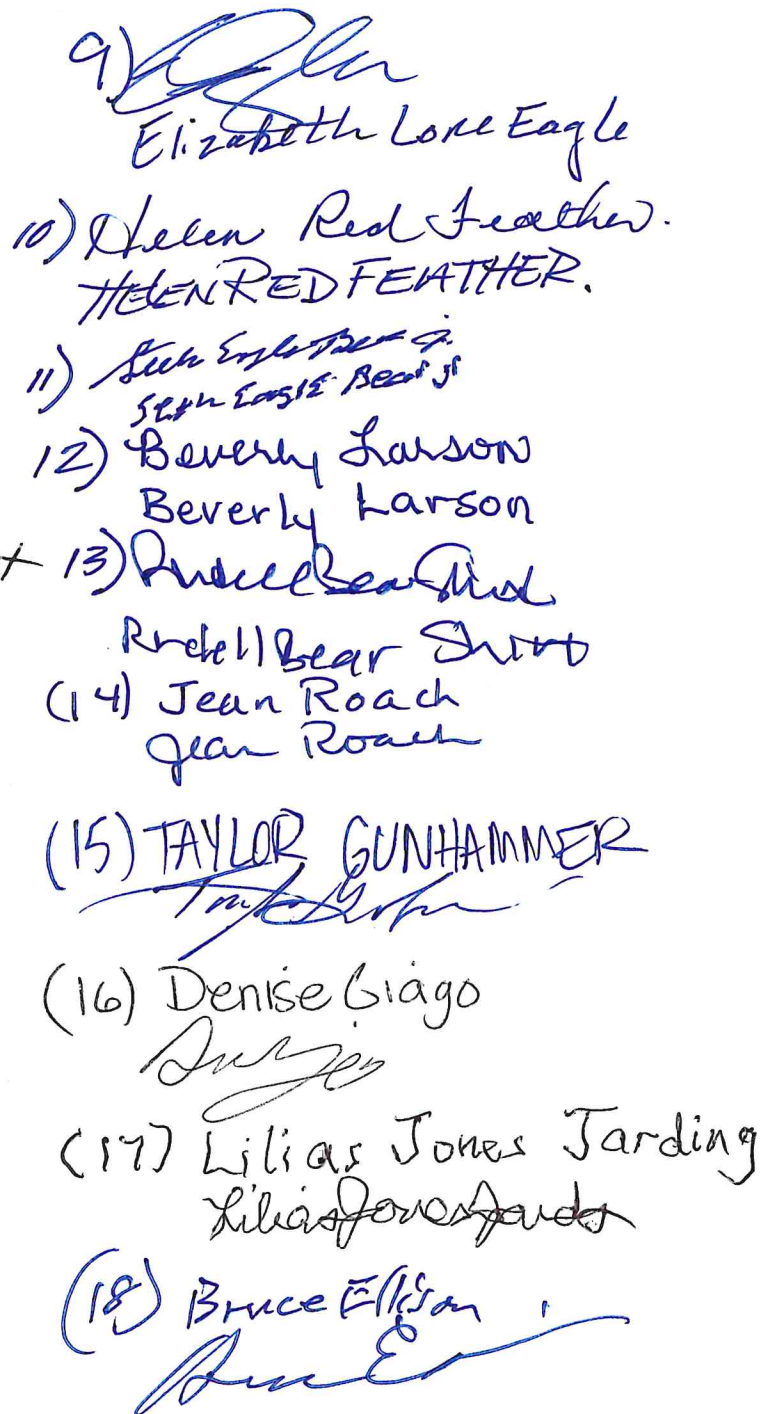 9)
Elizabeth Lone Eagle
10) Helen Red Feather.
HELEN RED FEATHER.
11) Seth Eagle Bear Jr.
Seth Eagle Bear Jr
12) Beverly Larson
Beverly Larson
+ 13) Rudell Bear Shirt
Rudell Bear Shirt
(14) Jean Roach
Jean Roach
(15) TAYLOR GUNHAMMER
(16) Denise Giago
(17) Lilias Jones Jarding
Lilias Jones Jarding
(18) Bruce Ellison